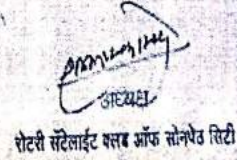 अध्यक्ष
रोटरी सॅटेलाईट क्लब ऑफ सोनपेठ सिटी